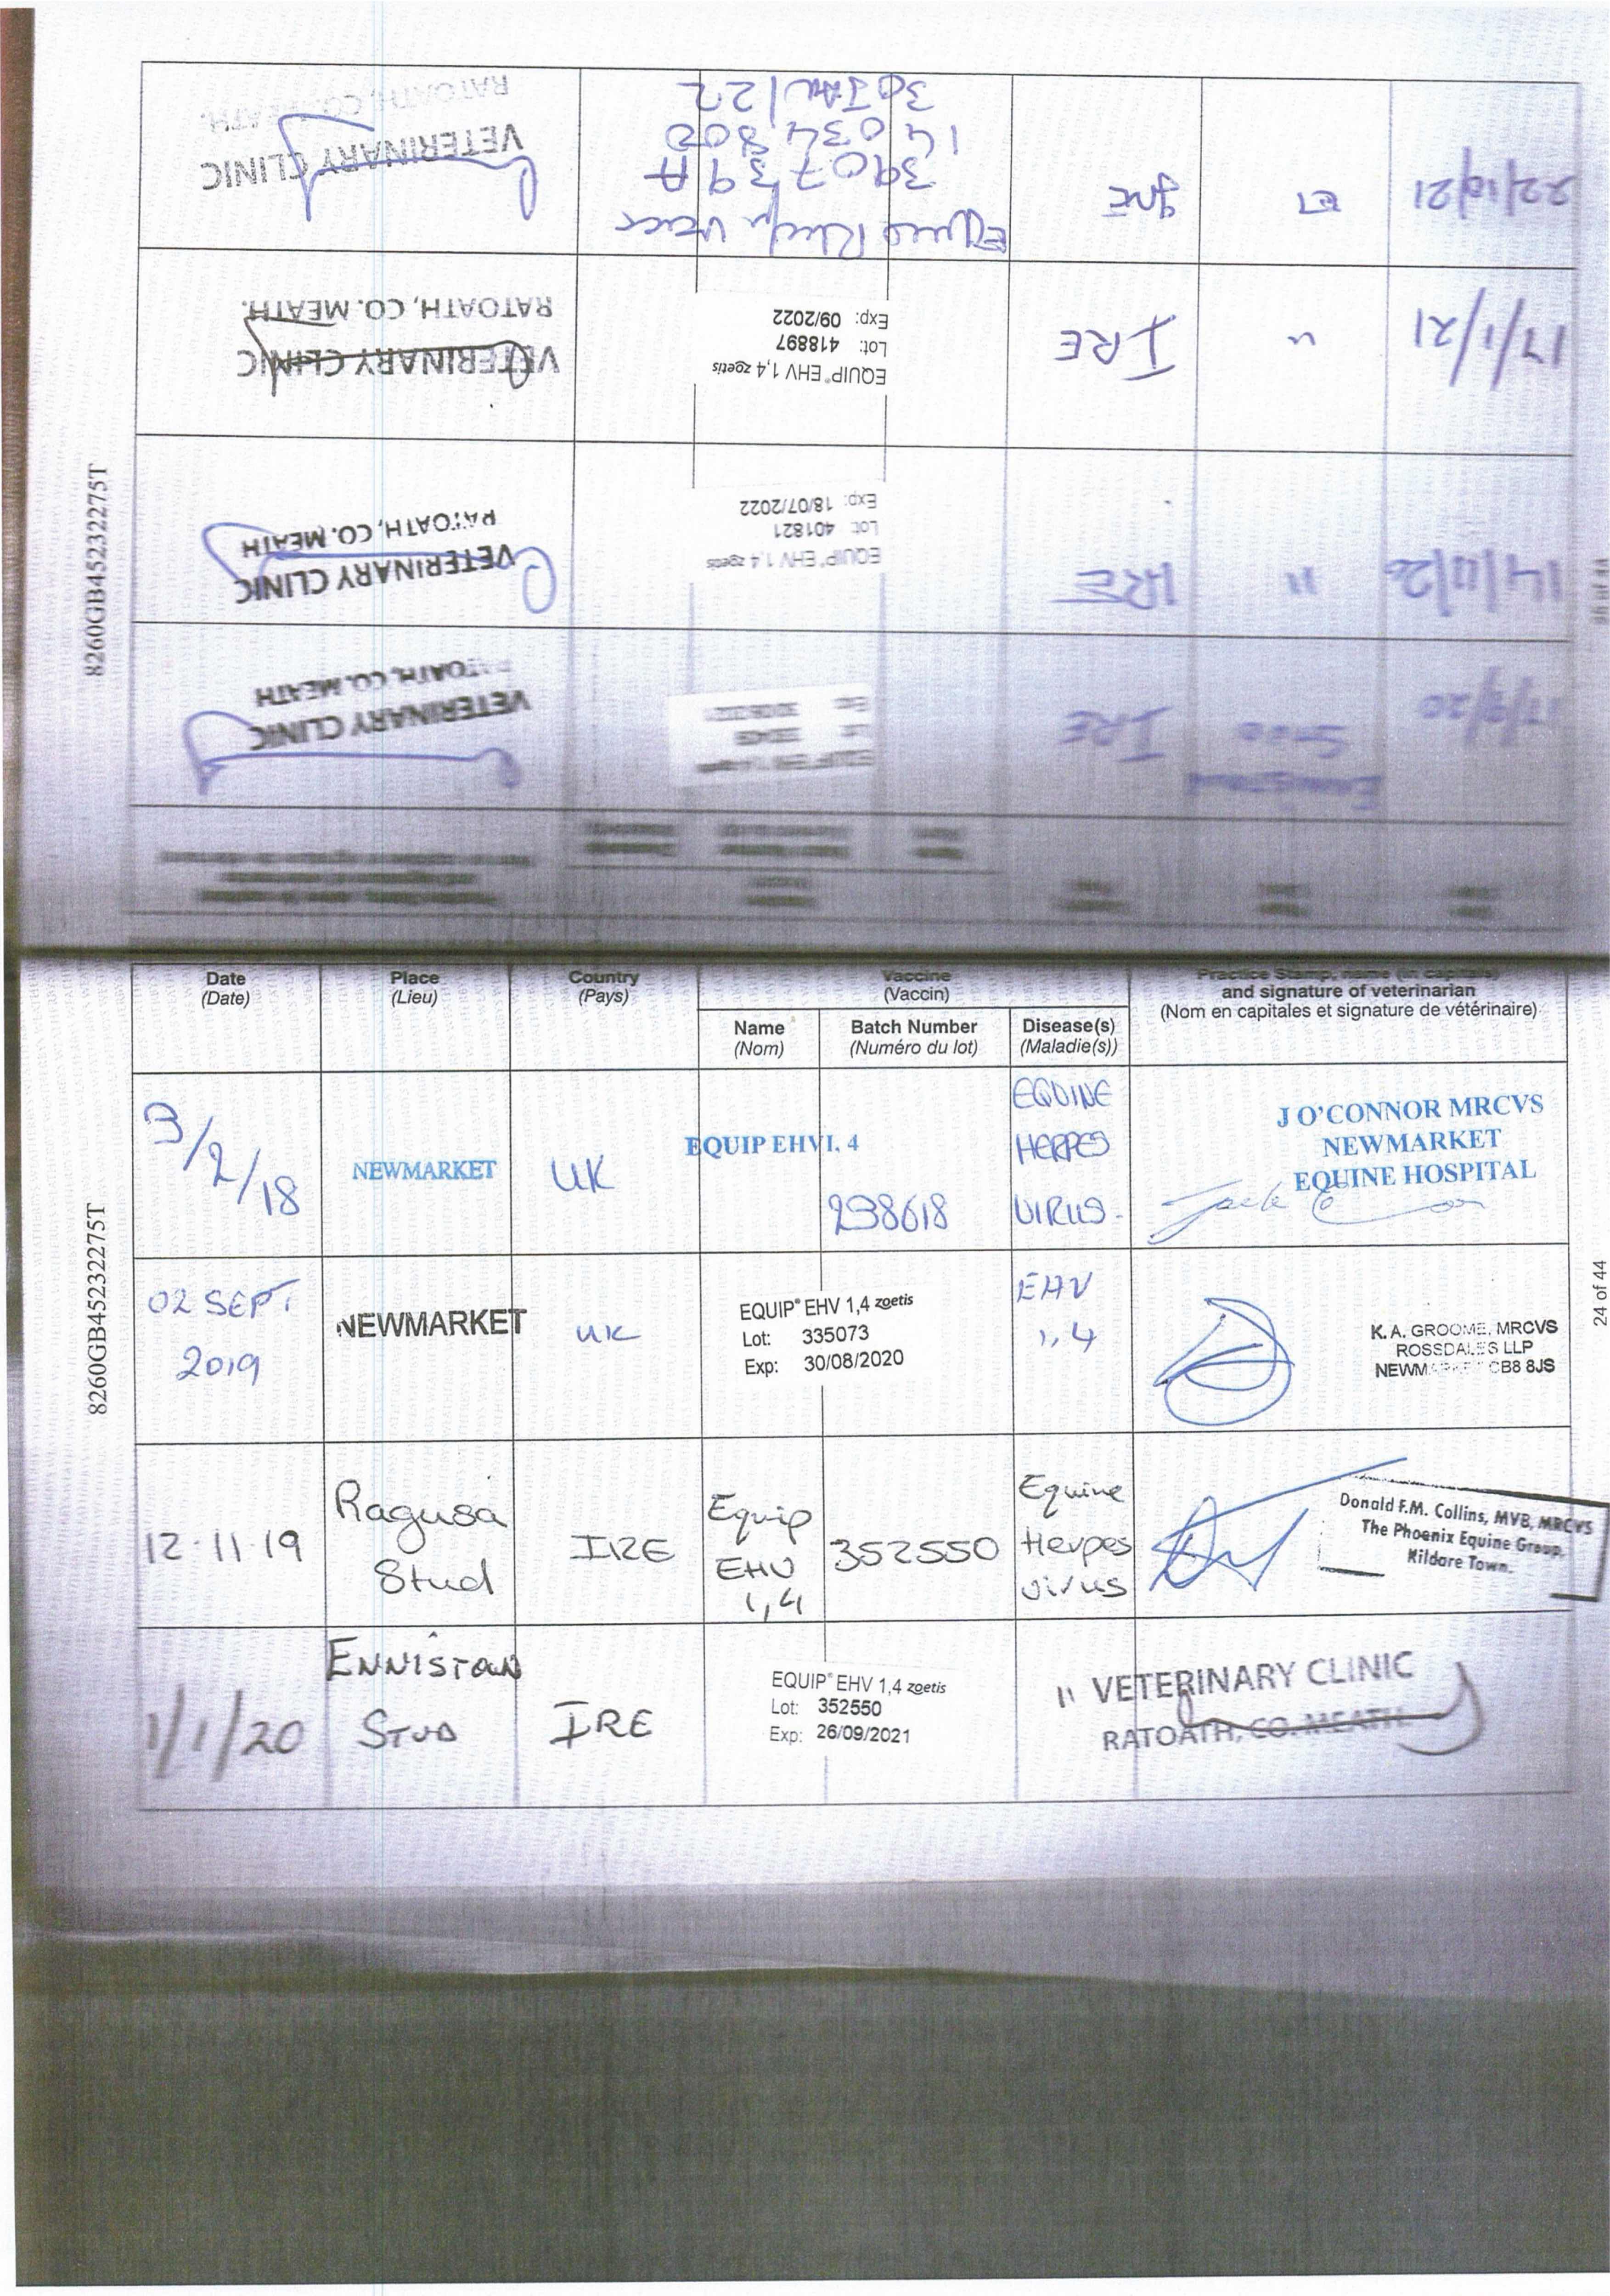 8260GB45232275T
17/9/20
ENNISTOWN
STUD
IRE
VETERINARY CLINIC
RATOATH, CO. MEATH
14/11/20
"
IRE
EQUIP® EHV 1,4 zoetis
Lot: 401821
Exp: 18/07/2022
VETERINARY CLINIC
RATOATH, CO. MEATH
17/1/21
"
IRE
EQUIP® EHV 1,4 zoetis
Lot: 418897
Exp: 09/2022
VETERINARY CLINIC
RATOATH, CO. MEATH.
22/10/21
IRE
Equine
390739A
30 JAN/22
VETERINARY CLINIC
RATOATH, CO. MEATH.
Date
(Date)
Place
(Lieu)
Country
(Pays)
Vaccine
(Vaccin)
Name
(Nom)
Batch Number
(Numéro du lot)
Disease(s)
(Maladie(s))
Practice Stamp, name (in capitals)
and signature of veterinarian
(Nom en capitales et signature de vétérinaire)
3/2/18
NEWMARKET
UK
EQUIP EHVI, 4
298618
EQUINE
HERPES
VIRUS.
J O'CONNOR MRCVS
NEWMARKET
EQUINE HOSPITAL
02 SEPT.
2019
NEWMARKET
UK
EQUIP® EHV 1,4 zoetis
Lot: 335073
Exp: 30/08/2020
EHV
1,4
K. A. GROOME, MRCVS
ROSSDALES LLP
NEWMARKET CB8 8JS
12.11.19
Ragusa
Stud
IRE
Equip
EHV
1,4
352550
Equine
Herpes
virus
Donald F.M. Collins, MVB, MRCVS
The Phoenix Equine Group,
Kildare Town.
1/1/20
ENNISTOWN
STUD
IRE
EQUIP® EHV 1,4 zoetis
Lot: 352550
Exp: 26/09/2021
"
VETERINARY CLINIC
RATOATH, CO. MEATH.
8260GB45232275T
24 of 44